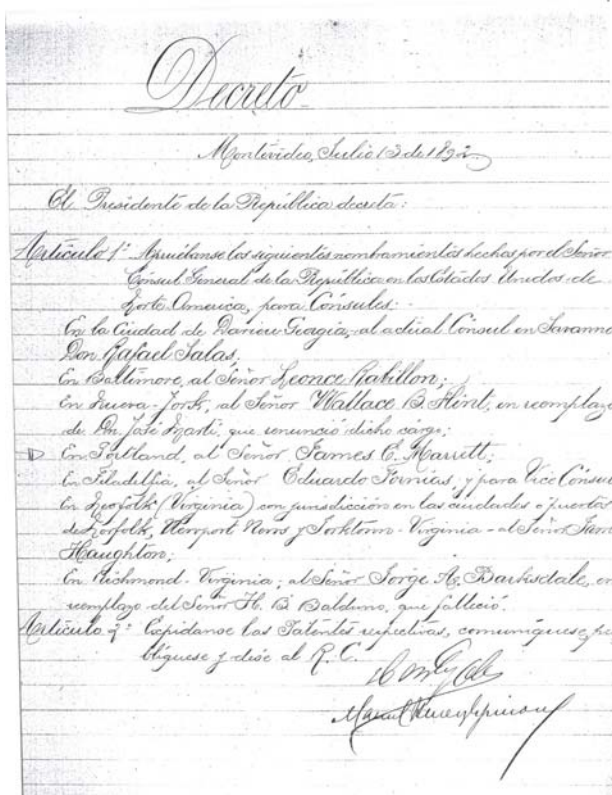 Decreto
Montevideo, Julio 13 de 1892.
El Presidente de la República decreta:
Artículo 1º Apruébanse los siguientes nombramientos hechos por el Señor
Cónsul General de la República en los Estados Unidos de
Norte America, para Cónsules:
En la Ciudad de Darien Georgia, al actual Cónsul en Savanna
Don Rafael Salas;
En Baltimore, al Señor Leonce Rabillon;
En Nueva-York, al Señor Wallace B. Flint, en reemplazo
de Dn José Martí, que renunció dicho cargo;
En Portland, al Señor James E. Marrett;
En Filadelfia, al Señor Eduardo Fornias, y para Vice Cónsul
En Norfolk (Virginia) con jurisdicción en las ciudades o puertos
de Norfolk, Newport News y Yorktown-Virginia-al Señor
Haughton;
En Richmond-Virginia, al Señor Jorge A. Barksdale, en
reemplazo del Señor H. B., que falleció.
Artículo 2º Expídanse las Patentes respectivas, comuníquese, pu
blíquese y dése al R. C.